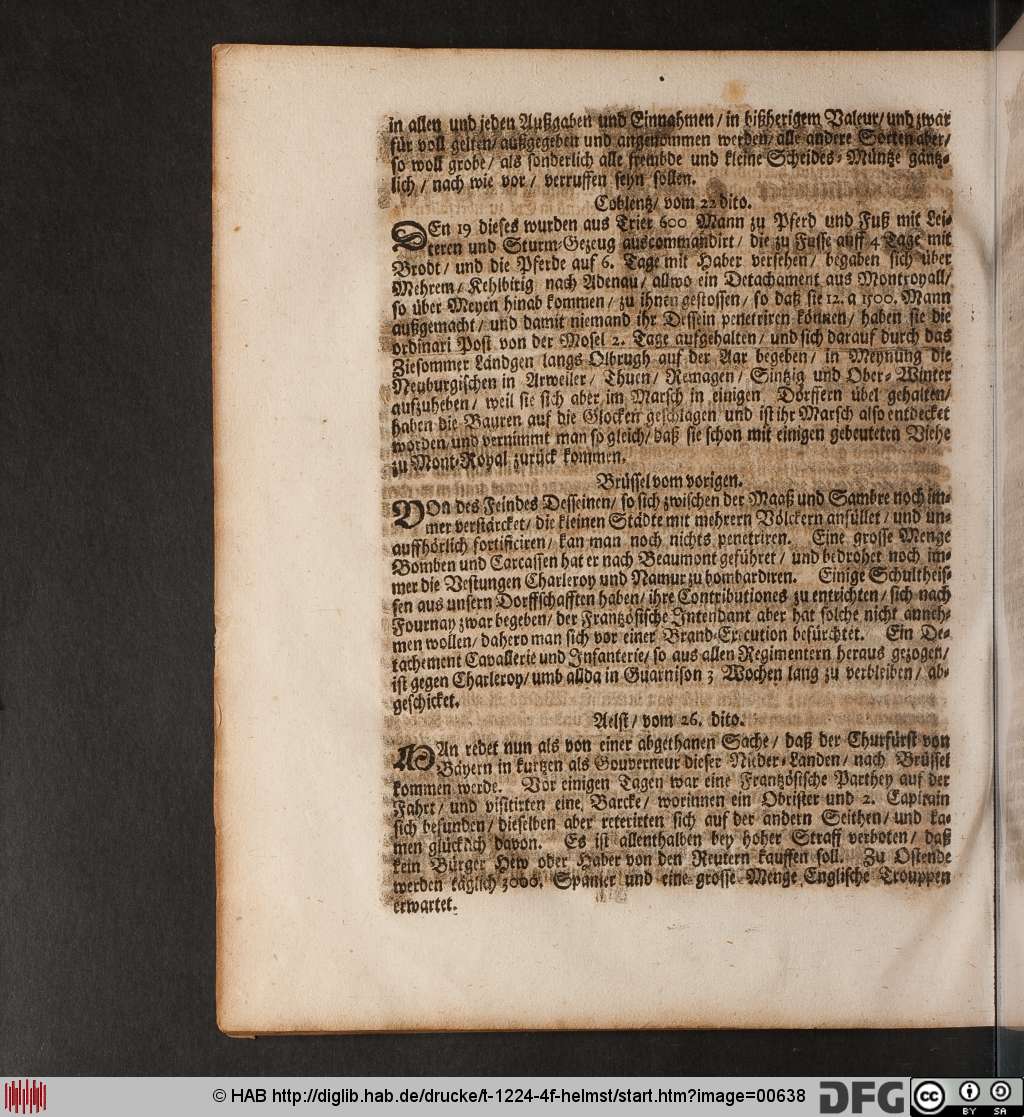 in allen und jeden Außgaben und Einnahmen / in bißherigem Valeur / und zwar
für voll gelten / außgegeben und angenommen werden / alle andere Sorten aber /
so woll grobe / als sonderlich alle frembde und kleine Scheides-Müntze gäntz-
lich / nach wie vor / verruffen seyn sollen.
Coblentz / vom 22 dito.
DEn 19 dieses wurden aus Trier 600 Mann zu Pferd und Fuß mit Lei-
teren und Sturm-Gezeug auscommandirt / die zu Fusse auff 4 Tage mit
Brodt / und die Pferde auf 6. Tage mit Haber versehen / begaben sich über
Mehrem / Kehlbitig nach Adenau / allwo ein Detachament aus Montroyall /
so über Meyen hinab kommen / zu ihnen gestossen / so daß sie 12. a 1500. Mann
außgemacht / und damit niemand ihr Dessein penetriren können / haben sie die
ordinari Post von der Mosel 2. Tage aufgehalten / und sich darauf durch das
Ziesommer Ländgen langs Olbrugh auf der Aar begeben / in Meynung die
Neuburgischen in Arweiler / Thuen / Remagen / Sintzig und Ober-Winter
aufzuheben / weil sie sich aber im Marsch in einigen Dörffern übel gehalten /
haben die Bauren auf die Glocken geschlagen und ist ihr Marsch also entdecket
worden und vernimmt man so gleich / daß sie schon mit einigen gebeuteten Viehe
zu Mont-Royal zurück kommen.
Brüssel vom vorigen.
VOn des Feindes Desseinen / so sich zwischen der Maaß und Sambre noch im-
mer verstärcket / die kleinen Städte mit mehrern Völckern anfüllet / und un-
auffhörlich fortificiren / kan man noch nichts penetriren. Eine grosse Menge
Bomben und Carcassen hat er nach Beaumont geführet / und bedrohet noch im-
mer die Vestungen Charleroy und Namur zu bombardiren. Einige Schultheis-
sen aus unsern Dorffschafften haben / ihre Contributiones zu entrichten / sich nach
Fournay zwar begeben / der Frantzösische Intendant aber hat solche nicht anneh-
men wollen / dahero man sich vor einer Brand-Execution befürchtet. Ein De-
tachement Cavallerie und Infanterie / so aus allen Regimentern heraus gezogen /
ist gegen Charleroy / umb allda in Guarnison 3 Wochen lang zu verbleiben / ab-
geschicket.
Aelst / vom 26. dito.
MAn redet nun als von einer abgethanen Sache / daß der Churfürst von
Bäyern in kurtzen als Gouverneur dieser Nieder-Landen / nach Brüssel
kommen werde. Vor einigen Tagen war eine Frantzösische Parthey auf der
Fahrt / und visitirten eine Barcke / worinnen ein Obrister und 2. Capitain
sich befunden / dieselben aber reterirten sich auf der andern Seithen / und ka-
men glücklich davon. Es ist allenthalben bey hoher Straff verboten / daß
kein Bürger Hew oder Haber von den Reutern kauffen soll. Zu Ostende
werden täglich 3000. Spanier und eine grosse Menge Englische Trouppen
erwartet.
© HAB http://diglib.hab.de/drucke/t-1224-4f-helmst/start.htm?image=00638
DFG
cc
BY SA